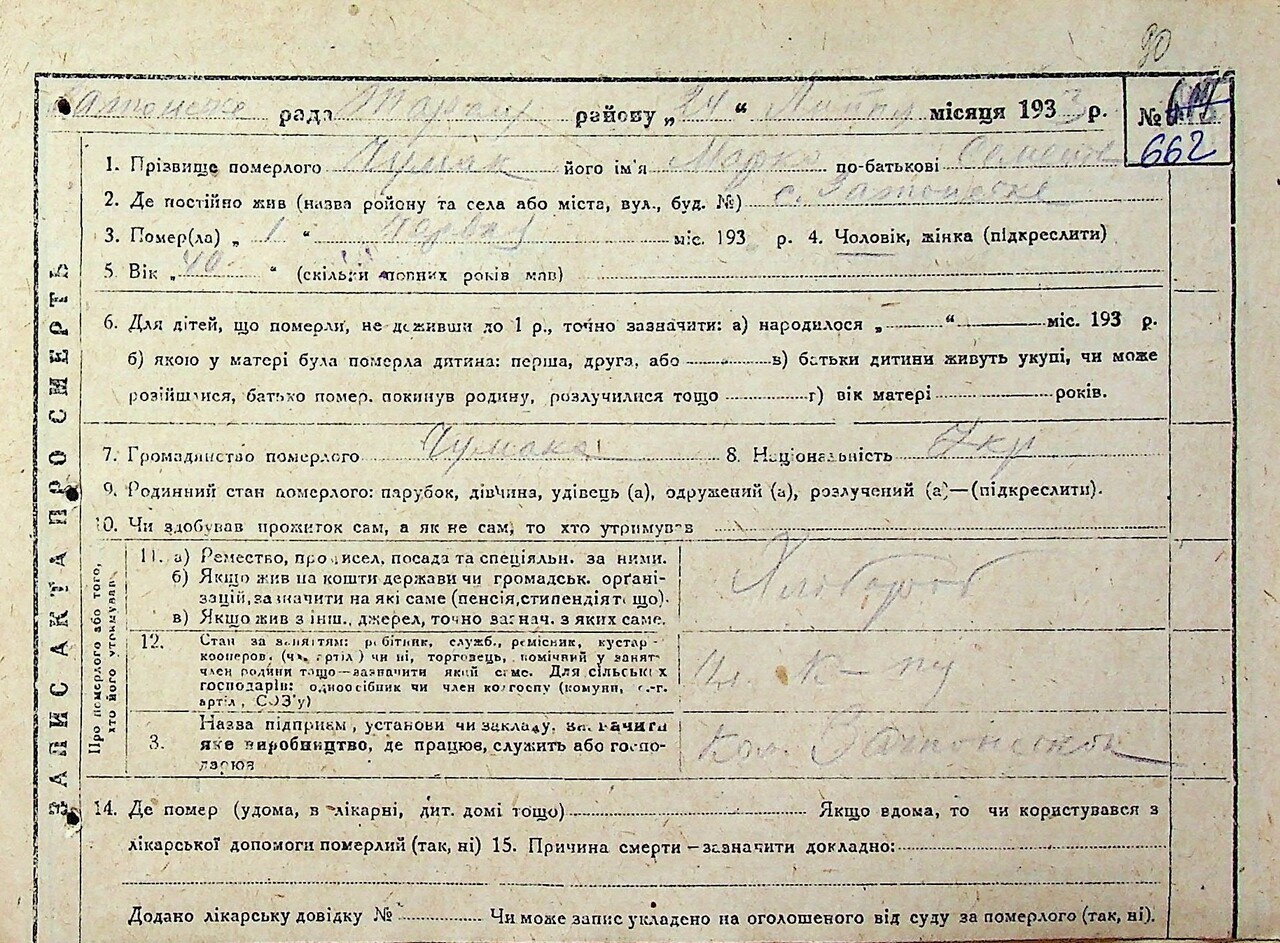 90
рада района „ 24 “ Липня місяця 1933 р. №
662
1. Прізвище померлого Чумак його ім'я Марко по-батькові Семенов
2. Де постійно жив (назва району та села або міста, вул., буд. №) с.
3. Помер(ла) „ 1 “ Червня міс. 193 р. 4. Чоловік, жінка (підкреслити)
5. Вік „ 40 “ (скільки повних років мав)
6. Для дітей, що померли, не доживши до 1 р., точно зазначити: а) народилося „ “ міс. 193 р.
б) якою у матері була померла дитина: перша, друга, або в) батьки дитини живуть укупі, чи може
розійшлися, батько помер. покинув родину, розлучилися тощо г) вік матері років.
7. Громадянство померлого 8. Національність Укр
9. Родинний стан померлого: парубок, дівчина, удівець (а), одружений (а), розлучений (а)—(підкреслити).
10. Чи здобував прожиток сам, а як не сам, то хто утримував
ЗАПИС АКТА ПРО СМЕРТЬ
Про померлого або того,
хто його утримував.
11. а) Ремество, промисел, посада та спеціяльн. за ними.
б) Якщо жив на кошти держави чи громадськ. орґані-
зацій, зазначити на які саме (пенсія, стипендія тощо).
в) Якщо жив з інш., джерел, точно зазнач. з яких саме.
Хлібороб
12. Стан за заняттям: робітник, служб., ремісник, кустар-
кооперов. (чл. артіл) чи ні, торговець, помічний у занят-
член родини тощо—зазначити який саме. Для сільських
господарів: одноосібник чи член колгоспу (комуни, с.-г.
артіл, СОЗ'у)
Чл к-пу
3. Назва підприєм, установи чи закладу, зазначити
яке виробництво, де працює, служить або госпо-
дарює
Кол.
14. Де помер (удома, в лікарні, дит. домі тощо) Якщо вдома, то чи користувався з
лікарської допомоги померлий (так, ні) 15. Причина смерти—зазначити докладно:
Додано лікарську довідку № Чи може запис укладено на оголошеного від суду за померлого (так, ні).